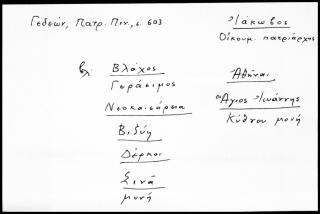 Γεδεών, Πατρ. Πιν., σ. 603
Ἰάκωβος
Οἰκουμ. πατριάρχης
βλ. Βλάχος
Γεράσιμος
Νεοκαισάρεια
Βιζύη
Δέρκοι
Σινᾶ
μονή
Ἀθῆναι
Ἅγιος Ἰωάννης
Κύθνου μονή